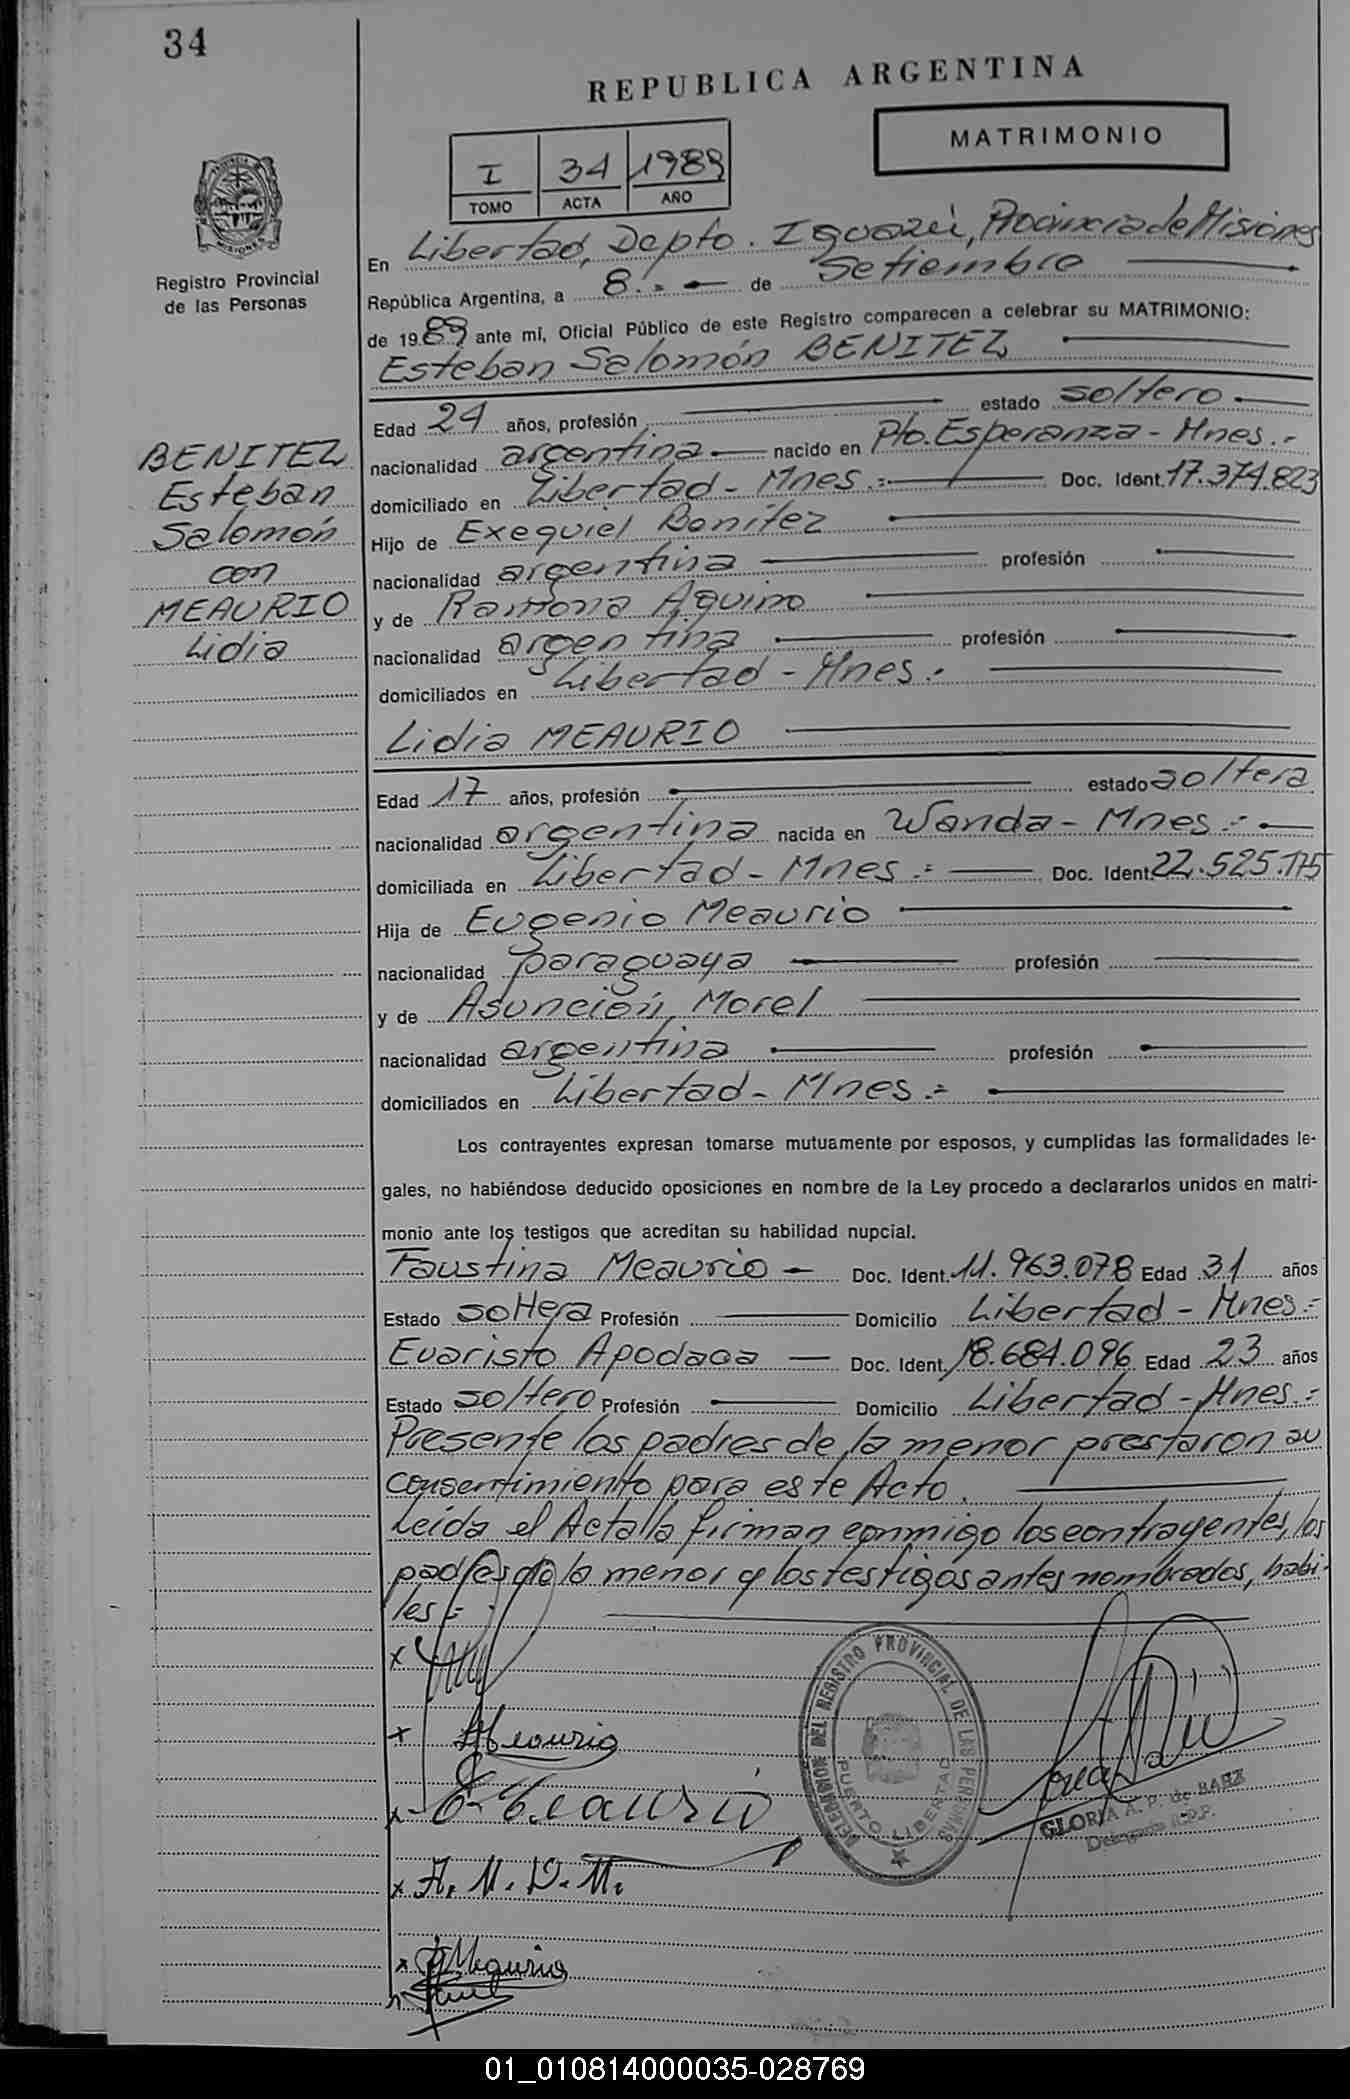 34
REPUBLICA ARGENTINA
MATRIMONIO
I 34 1989
TOMO ACTA AÑO
PROVINCIA DE MISIONES
Registro Provincial
de las Personas
En Libertad, Depto. Iguazú, Provincia de Misiones
República Argentina, a 8.- de Setiembre
de 1989 ante mí, Oficial Público de este Registro comparecen a celebrar su MATRIMONIO:
Esteban Salomón BENITEZ
Edad 24 años, profesión estado soltero
nacionalidad argentina nacido en Pto. Esperanza - Mnes.-
domiciliado en Libertad - Mnes.- Doc. Ident. 17.374.823
Hijo de Exequiel Benitez
nacionalidad argentina profesión
y de Ramona Aquino
nacionalidad argentina profesión
domiciliados en Libertad - Mnes.-
BENITEZ
Esteban
Salomón
con
MEAURIO
Lidia
Lidia MEAURIO
Edad 17 años, profesión estado soltera
nacionalidad argentina nacida en Wanda - Mnes.-
domiciliada en Libertad - Mnes.- Doc. Ident. 22.525.175
Hija de Eugenio Meaurio
nacionalidad paraguaya profesión
y de Asunción Morel
nacionalidad argentina profesión
domiciliados en Libertad - Mnes.-
Los contrayentes expresan tomarse mutuamente por esposos, y cumplidas las formalidades le-
gales, no habiéndose deducido oposiciones en nombre de la Ley procedo a declararlos unidos en matri-
monio ante los testigos que acreditan su habilidad nupcial.
Faustina Meaurio - Doc. Ident. 11.963.078 Edad 31 años
Estado soltera Profesión Domicilio Libertad - Mnes.-
Evaristo Apodaca - Doc. Ident. 18.684.096 Edad 23 años
Estado soltero Profesión Domicilio Libertad - Mnes.-
Presente los padres de la menor prestaron su
consentimiento para este Acto.
Leída el Acta la firman conmigo los contrayentes, los
padres de la menor y los testigos antes nombrados, habi-
les.-
x
x Meaurio
x E. Meaurio
x A. M. D. M.
x F Meaurio
DELEGACION DEL REGISTRO PROVINCIAL DE LAS PERSONAS
PUERTO LIBERTAD
GLORIA A. P. de BAEZ
Delegada R.P.P.
01_010814000035-028769